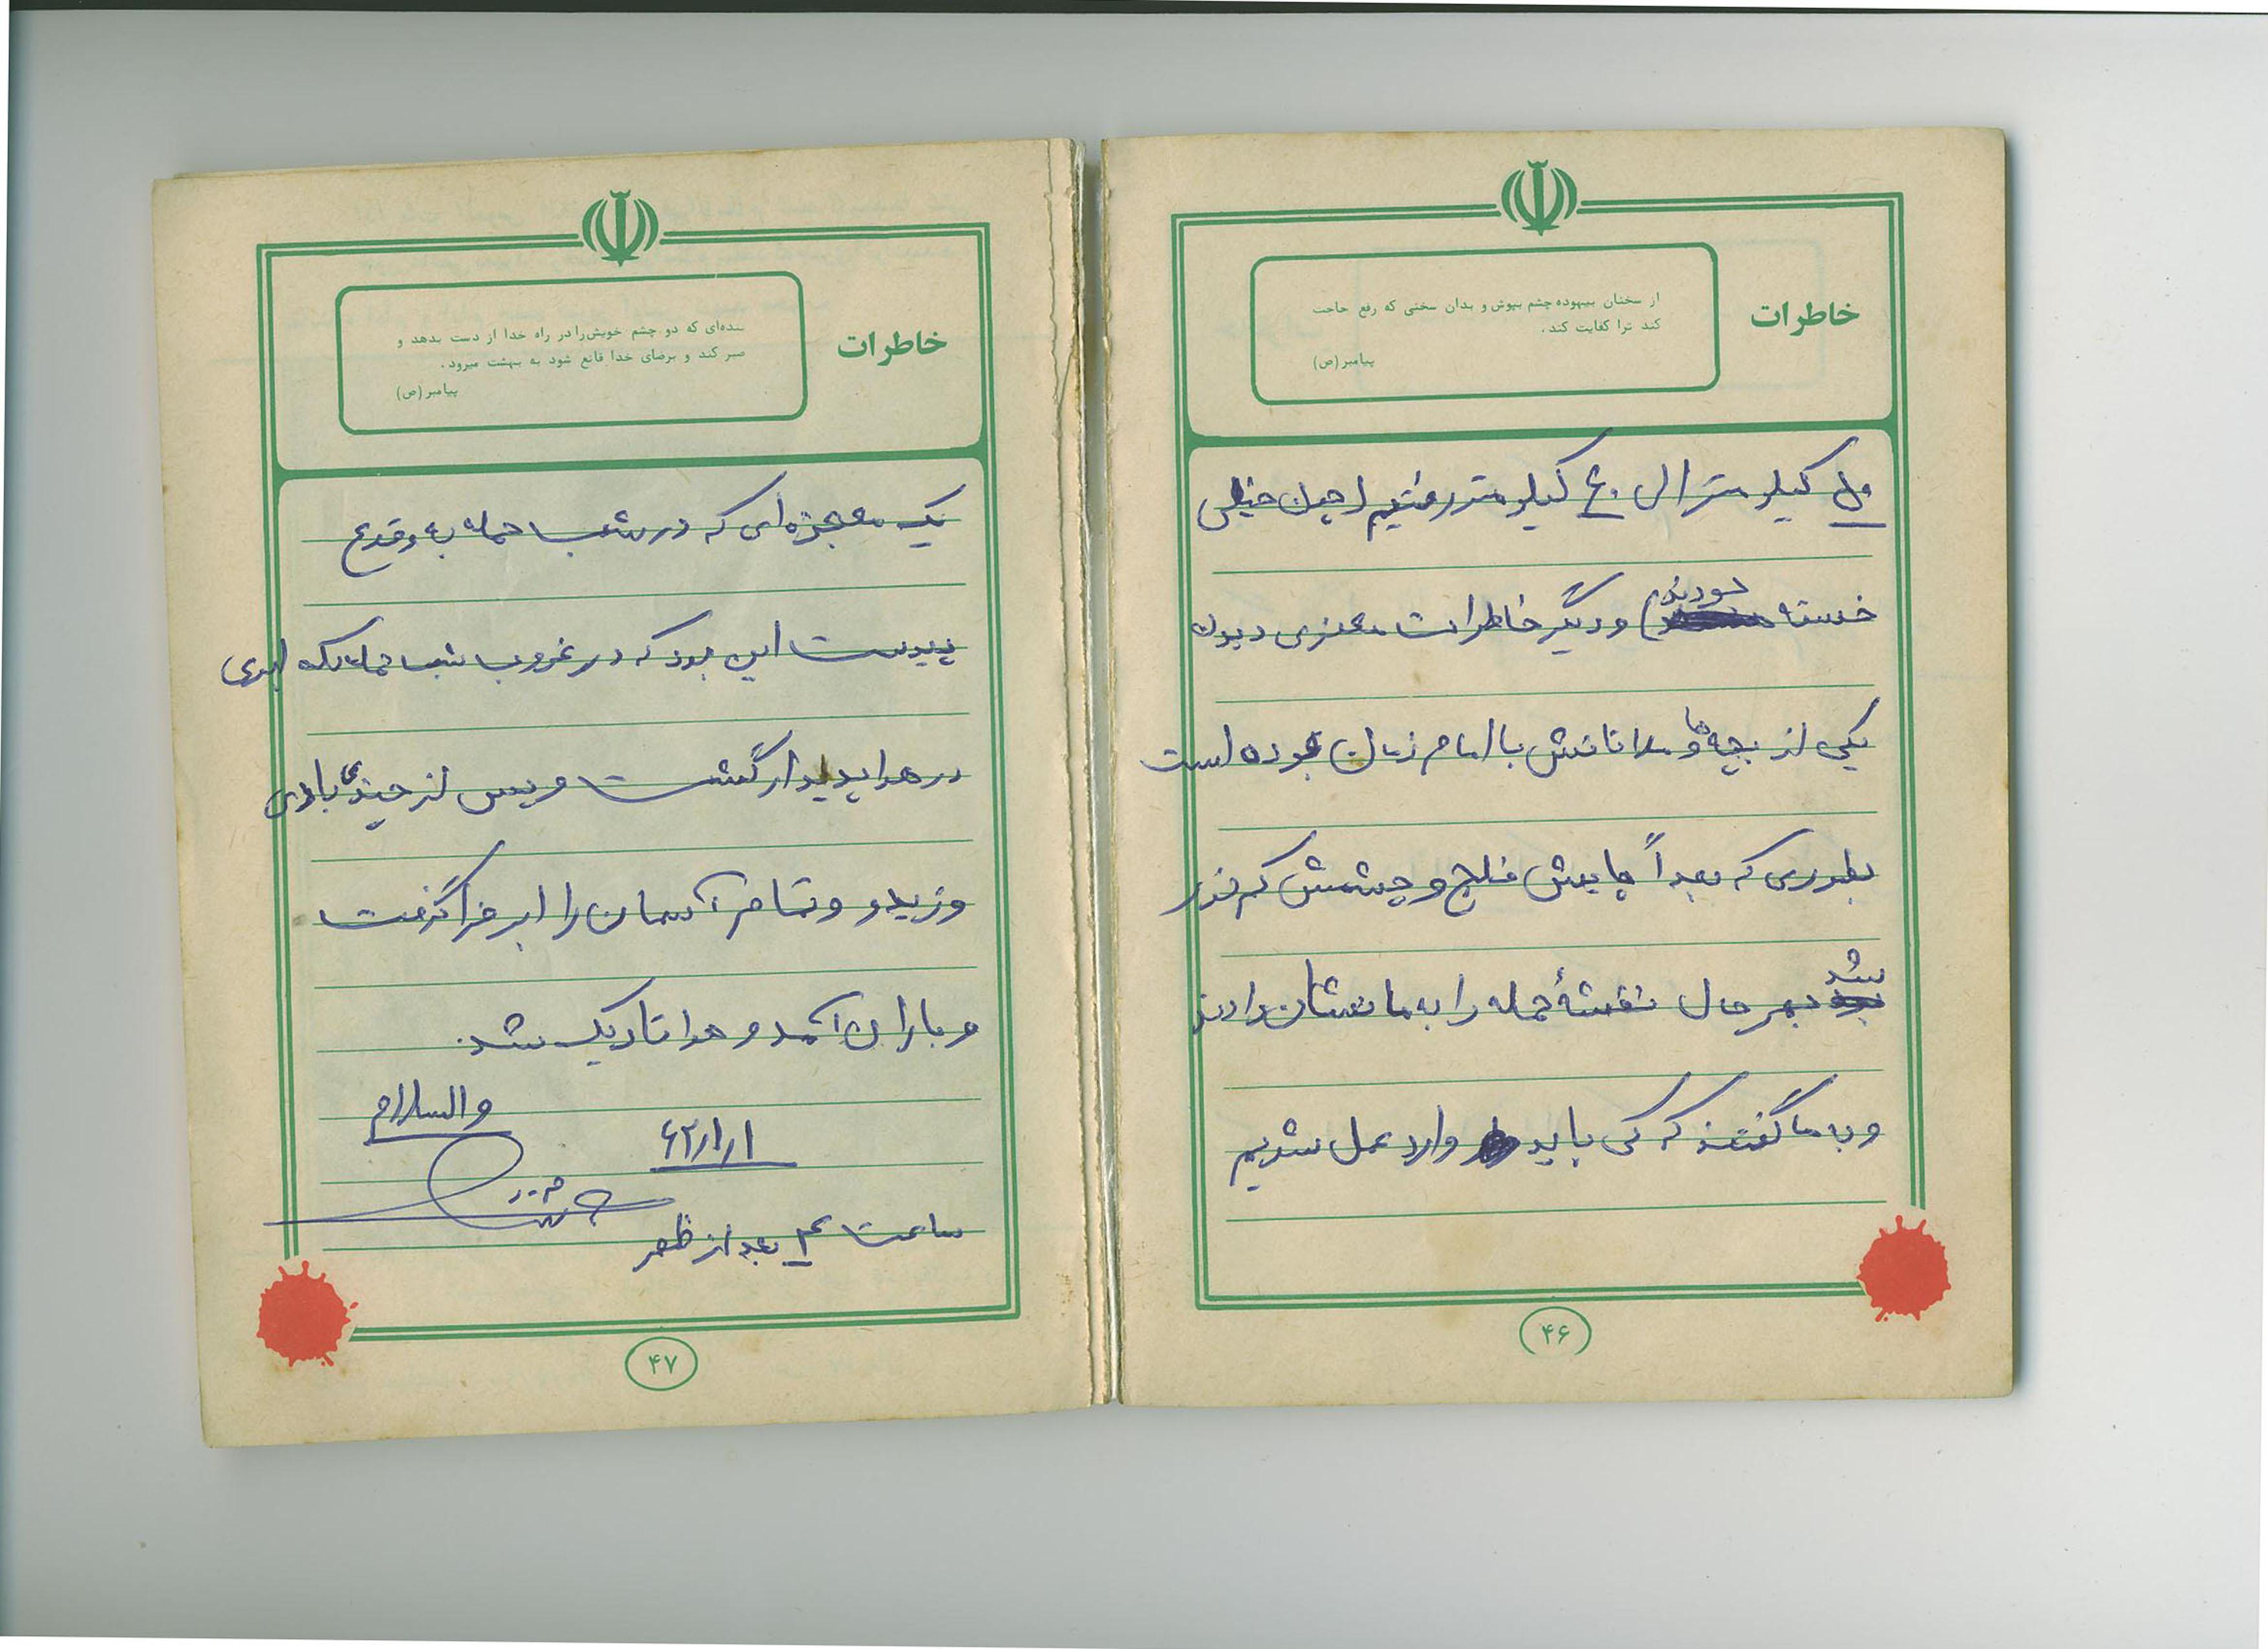 خاطرات
از سخنان بیهوده چشم بپوش و بدان سخنی که رفع حاجت
کند ترا کفایت کند.
پیامبر (ص)
کیلو متر الی ۴۰ کیلو متر رفتیم (چون خیلی
خسته بودند) و دیگر خاطرات معنوی دیدن
یکی از بچه ها ملاقاتش با امام زمان بوده است
بطوری که بعداً پایش فلج و چشمش کم نور
شد بهر حال نقشهٔ حمله را به ما نشان دادند
و به ما گفتند که کی باید وارد عمل شدیم
۴۶
خاطرات
بنده‌ای که دو چشم خویش را در راه خدا از دست بدهد و
صبر کند و برضای خدا قانع شود به بهشت میرود.
پیامبر (ص)
یک معجزه‌ای که در شب حمله به وقوع
پیوست این بود که در غروب شب حمله یکه ابری
در هوا پدیدار گشت و پس از چندی بادی
وزید و تمام آسمان را ابر فرا گرفت
و باران آمد و هوا تاریک شد.
والسلام
۶۲/۱/۱
ساعت ۴ بعد از ظهر
۴۷